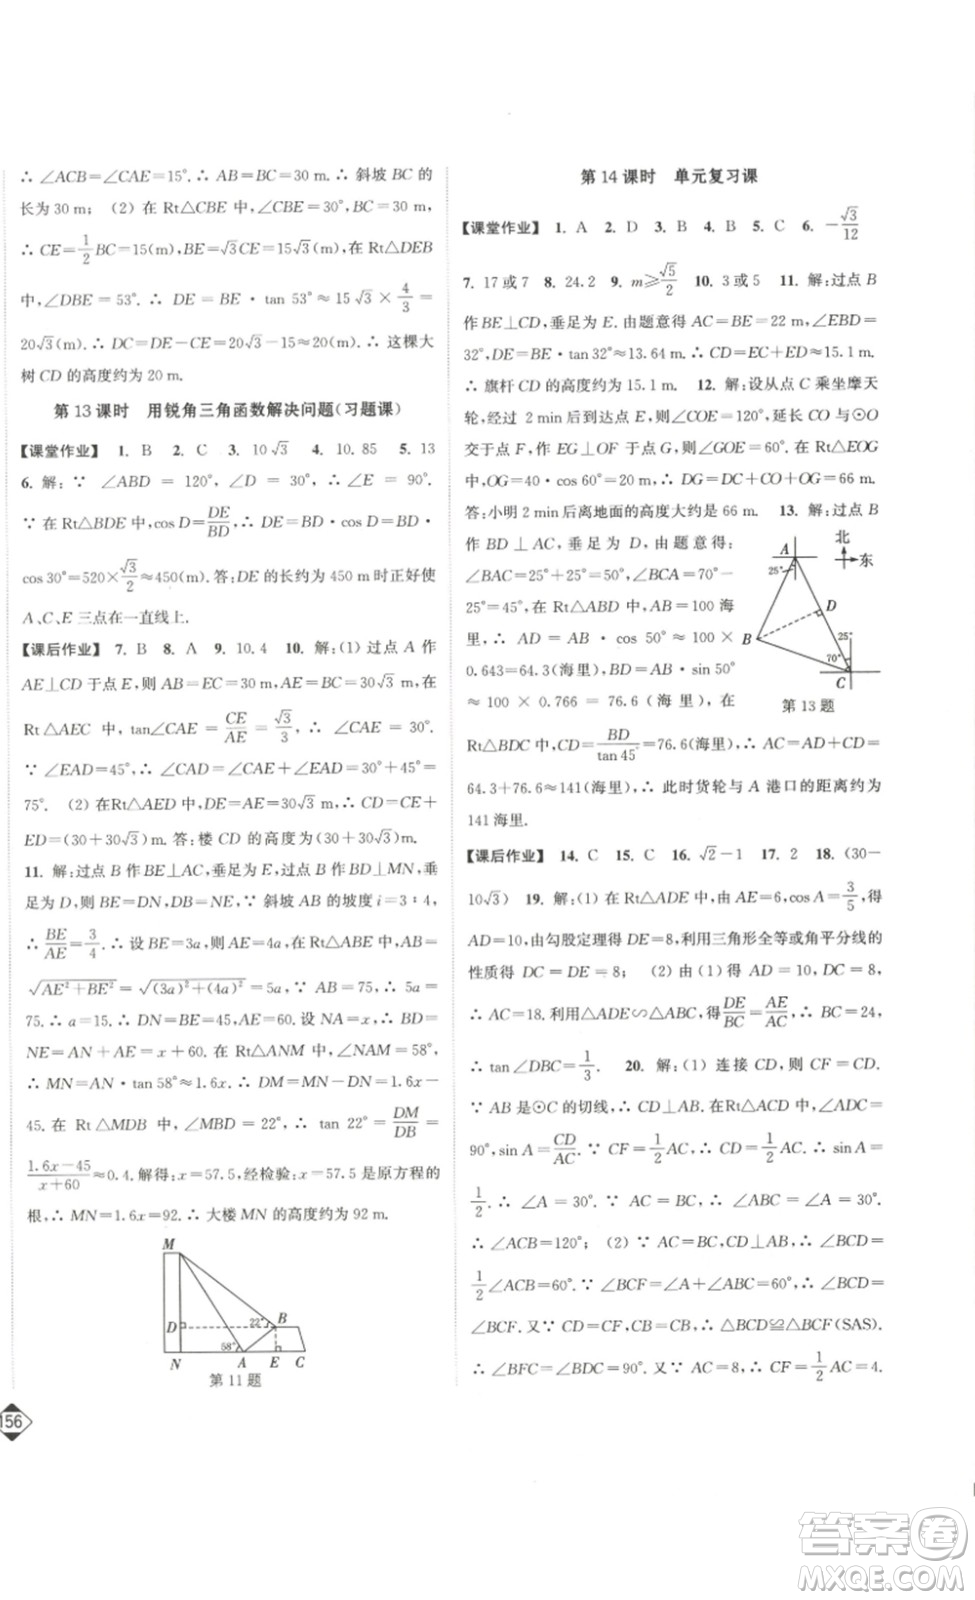 ∴ ∠ACB=∠CAE=15°. ∴ BC=AB=30 m. ∴ 斜坡 BC 的
长为 30 m; (2) 在 Rt△CBE 中, ∠CBE=30°, BC=30 m,
∴ CE=1/2 BC=15(m), BE=√3 CE=15√3(m). 在 Rt△DEB
中, ∠DBE = 53°. ∴ DE = BE · tan 53° ≈ 15√3 × 4/3 =
20√3(m). ∴ DC=DE-CE=20√3-15≈20(m). ∴ 这棵大
树 CD 的高度约为 20 m.
第 13 课时 用锐角三角函数解决问题(习题课)
【课堂作业】 1. B 2. C 3. 10√3 4. 10.85 5. 13
6. 解: ∵ ∠ABD = 120°, ∠D = 30°, ∴ ∠E = 90°.
∵ 在 Rt△BDE 中, cos D=DE/BD, ∴ DE=BD · cos D=BD ·
cos 30°=520×√3/2≈450(m). 答: DE 的长约为 450 m 时正好使
A、C、E 三点在一直线上.
【课后作业】 7. B 8. A 9. 10.4 10. 解:(1) 过点 A 作
AE⊥CD 于点 E, 则 AB=EC=30 m, AE=BC=30√3 m. 在
Rt△AEC 中, tan∠CAE=CE/AE=√3/3, ∴ ∠CAE = 30°.
∵ ∠EAD=45°, ∴ ∠CAD=∠CAE+∠EAD=30°+45°=
75°. (2) 在Rt△AED 中, DE=AE=30√3 m. ∴ CD=CE+
ED=(30+30√3)m. 答: 楼 CD 的高度为(30+30√3)m.
11. 解: 过点 B 作 BE⊥AC, 垂足为 E, 过点 B 作 BD⊥MN, 垂
足为 D, ∴ BE=DN, DB=NE. ∵ 斜坡 AB 的坡度 i=3∶4,
∴ BE/AE=3/4. ∴ 设 BE=3a, 则 AE=4a, 在 Rt△ABE 中, AB=
√(AE²+BE²)=√((3a)²+(4a)²)=5a. ∵ AB=75, ∴ 5a=
75. ∴ a=15. ∴ DN=BE=45, AE=60. 设 NA=x, ∴ BD=
NE=AN+AE=x+60. 在 Rt△ANM 中, ∠NAM = 58°,
∴ MN=AN · tan 58°≈1.6x. ∴ DM=MN-DN=1.6x-
45. 在 Rt△MDB 中, ∠MBD = 22°, ∴ tan 22° = DM/DB =
(1.6x-45)/(x+60)≈0.4. 解得: x=57.5, 经检验: x=57.5 是原方程的
根, ∴ MN=1.6x=92. ∴ 大楼 MN 的高度约为 92 m.
M
D
22°
B
58°
N
A
E
C
第 11 题
156
第 14 课时 单元复习课
【课堂作业】 1. A 2. D 3. B 4. B 5. C 6. -√3/12
7. 17 或 7 8. 24.2 9. m≥√5/2 10. 3 或 5 11. 解: 过点 B
作 BE⊥CD, 垂足为 E. 由题意得 AC=BE=22 m, ∠EBD=
32°, DE=BE · tan 32°≈13.64 m. ∴ CD=CE+ED≈15.1 m.
∴ 旗杆 CD 的高度约 15.1 m. 12. 解: 设从点 C 乘坐摩天
轮, 经过 2 min 后到达点 E, 则∠COE=120°, 延长 CO 与⊙O
交于点 F, 作 EG⊥OF 于点 G, 则∠GOE=60°. 在 Rt△EOG
中, OG=40 · cos 60°=20 m. ∴ DG=DC+CO+OG=66 m.
答: 小明 2 min 后离地面的高度大约是 66 m. 13. 解: 过点 B
作 BD ⊥ AC, 垂足为 D, 由题意得:
∠BAC=25°+25°=50°, ∠BCA=70°-
25°=45°, 在 Rt△ABD 中, AB=100 海
里, ∴ AD = AB · cos 50° ≈ 100 ×
0.643=64.3(海里), BD=AB · sin 50°
≈ 100 × 0.766 = 76.6 (海里), 在
A
北
东
25°
D
B
25°
70°
C
第 13 题
Rt△BDC 中, CD=BD/tan 45°=76.6(海里), ∴ AC=AD+CD=
64.3+76.6≈141(海里), ∴ 此时货轮与 A 港口的距离约为
141 海里.
【课后作业】 14. C 15. C 16. √2-1 17. 2 18. (30-
10√3) 19. 解:(1) 在 Rt△ADE 中, 由 AE=6, cos A=3/5, 得
AD=10, 由勾股定理得 DE=8, 利用三角形全等或角平分线的
性质得 DC=DE=8; (2) 由(1)得 AD=10, DC=8,
∴ AC=18. 利用△ADE∽△ABC, 得 DE/BC=AE/AC, ∴ BC=24,
∴ tan∠DBC=1/3. 20. 解:(1) 连接 CD, 则 CF=CD.
∵ AB 是⊙C 的切线, ∴ CD⊥AB. 在Rt△ACD 中, ∠ADC=
90°, sin A=CD/AC. ∵ CF=1/2 AC, CF=CD, ∴ sin A=
1/2. ∴ ∠A = 30°. ∵ AC = BC, ∴ ∠ABC = ∠A = 30°.
∴ ∠ACB=120°; (2) ∵ AC=BC, CD⊥AB, ∴ ∠BCD=
1/2∠ACB=60°. ∵ ∠BCF=∠A+∠ABC=60°, ∴ ∠BCD=
∠BCF. 又∵ CD=CF, CB=CB, ∴ △BCD≌△BCF(SAS).
∴ ∠BFC=∠BDC=90°. 又∵ AC=8, ∴ CF=1/2 AC=4.
答案卷
MXQE.COM